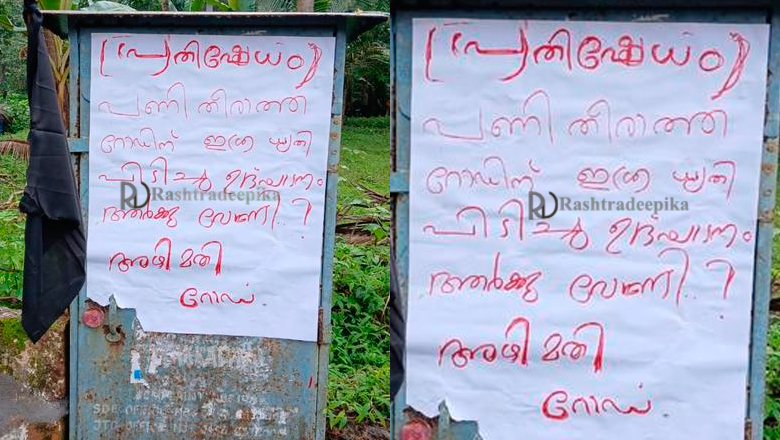 (പ്രതിഷേധം)
പണി തീരാത്ത
റോഡിന് ഇത്ര ധൃതി
പിടിച്ചു ഉദ്ഘാടനം
ആർക്കു വേണ്ടി..?
അഴിമതി
റോഡ്.
Rashtradeepika
SDE OFFICE
JTO OFFICE
(പ്രതിഷേധം)
പണി തീരാത്ത
റോഡിന് ഇത്ര ധൃതി
പിടിച്ചു ഉദ്ഘാടനം
ആർക്കു വേണ്ടി..?
അഴിമതി
റോഡ്.
Rashtradeepika